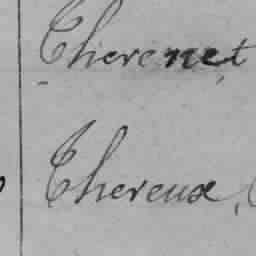 Thevenet
Thereux,